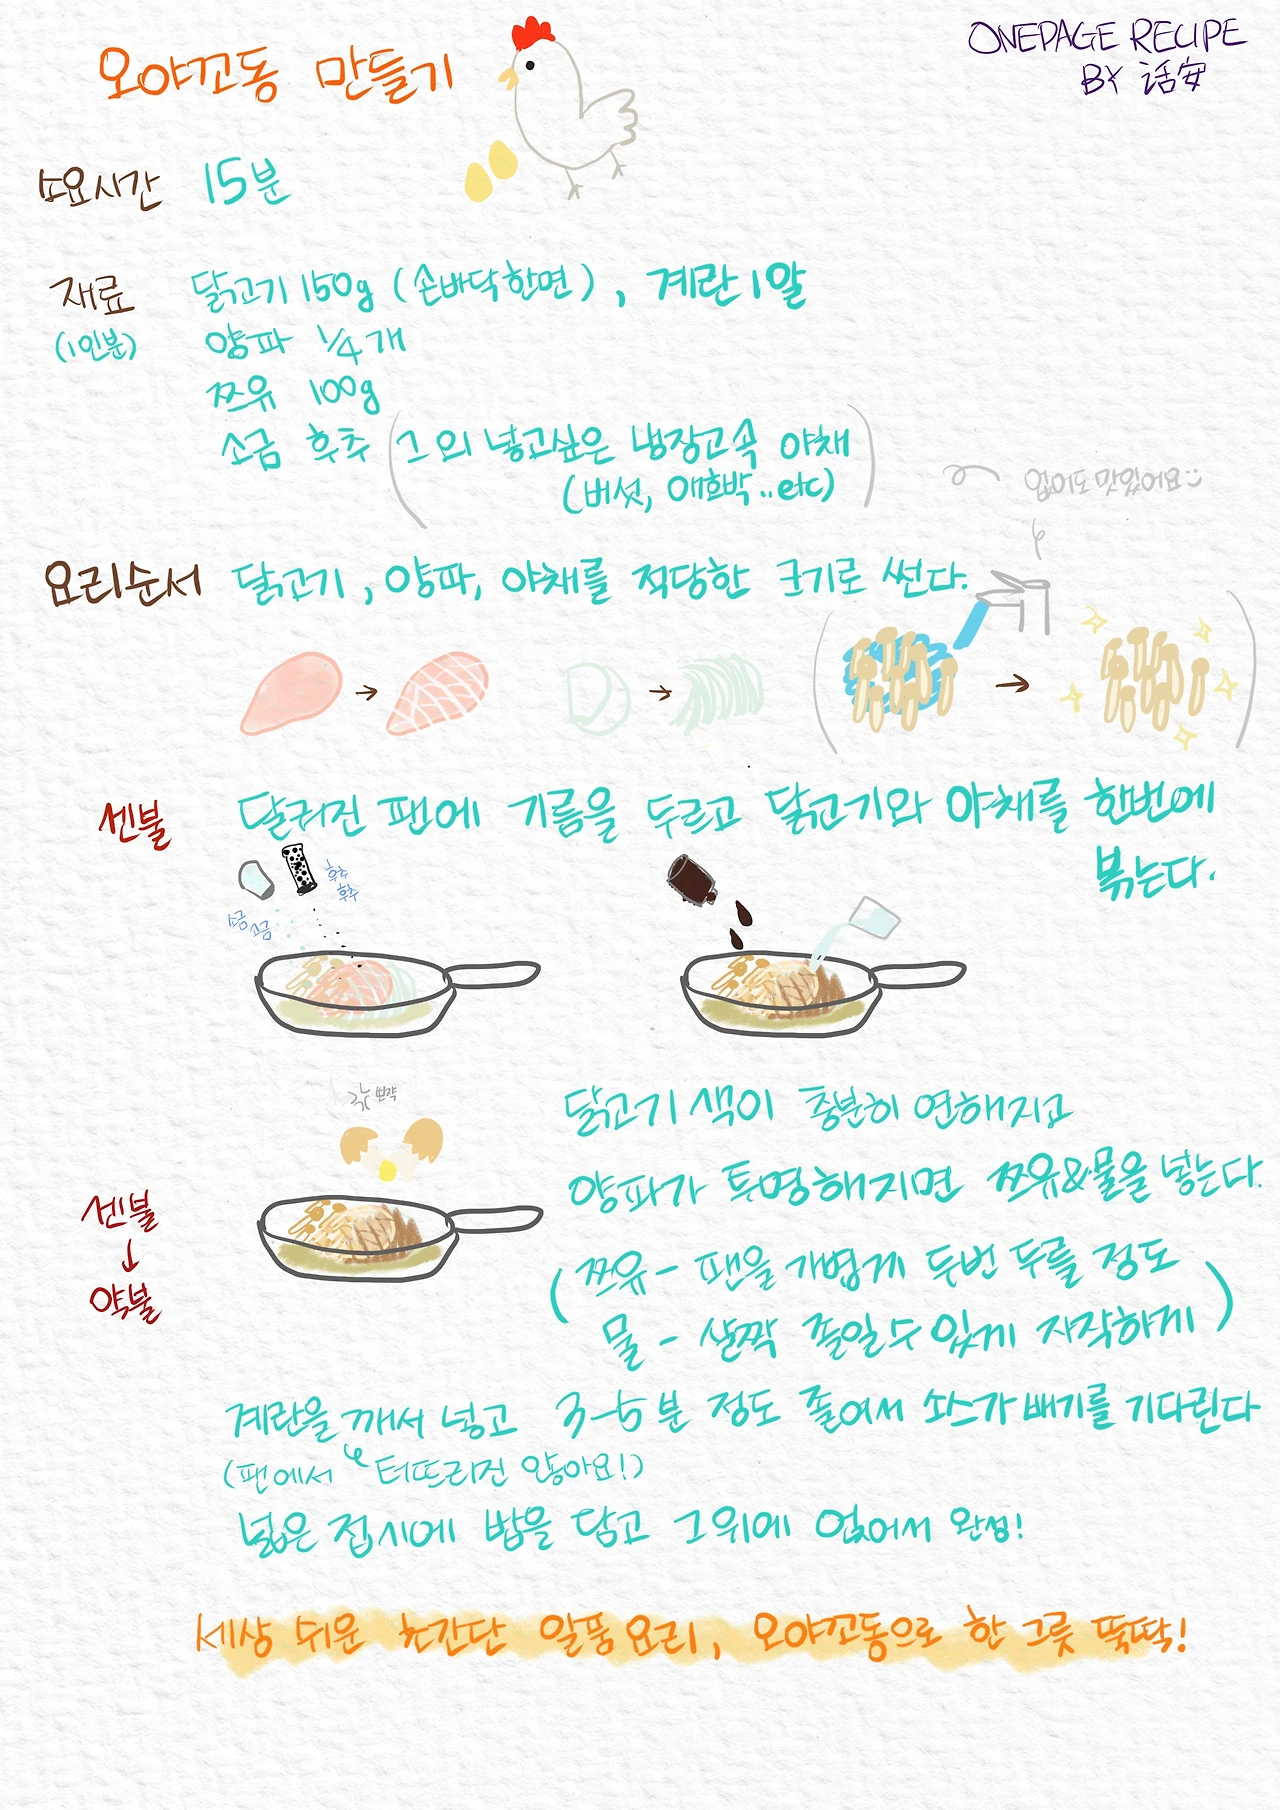 오야꼬동 만들기
ONEPAGE RECIPE
BY 话安
소요시간 15분
재료 닭고기 150g (손바닥한면), 계란 1알
(1인분) 양파 1/4개
쯔유 100g
소금 후추 (그 외 넣고싶은 냉장고속 야채
(버섯, 애호박..etc))
없어도 맛있어요:)
요리순서 닭고기, 양파, 야채를 적당한 크기로 썬다.
센불 달궈진 팬에 기름을 두르고 닭고기와 야채를 한번에
볶는다.
후추
후추
소금
소금
뽀각
닭고기 색이 충분히 연해지고
양파가 투명해지면 쯔유&물을 넣는다.
센불
↓
약불
(쯔유 - 팬을 가볍게 두번 두를 정도
물 - 살짝 졸일수 있게 자작하게)
계란을 깨서 넣고 3-5분 정도 졸여서 쏘스가 배기를 기다린다
(팬에서 터뜨리진 않아요!)
넓은 접시에 밥을 담고 그 위에 얹어서 완성!
세상 쉬운 초간단 일품요리, 오야꼬동으로 한 그릇 뚝딱!